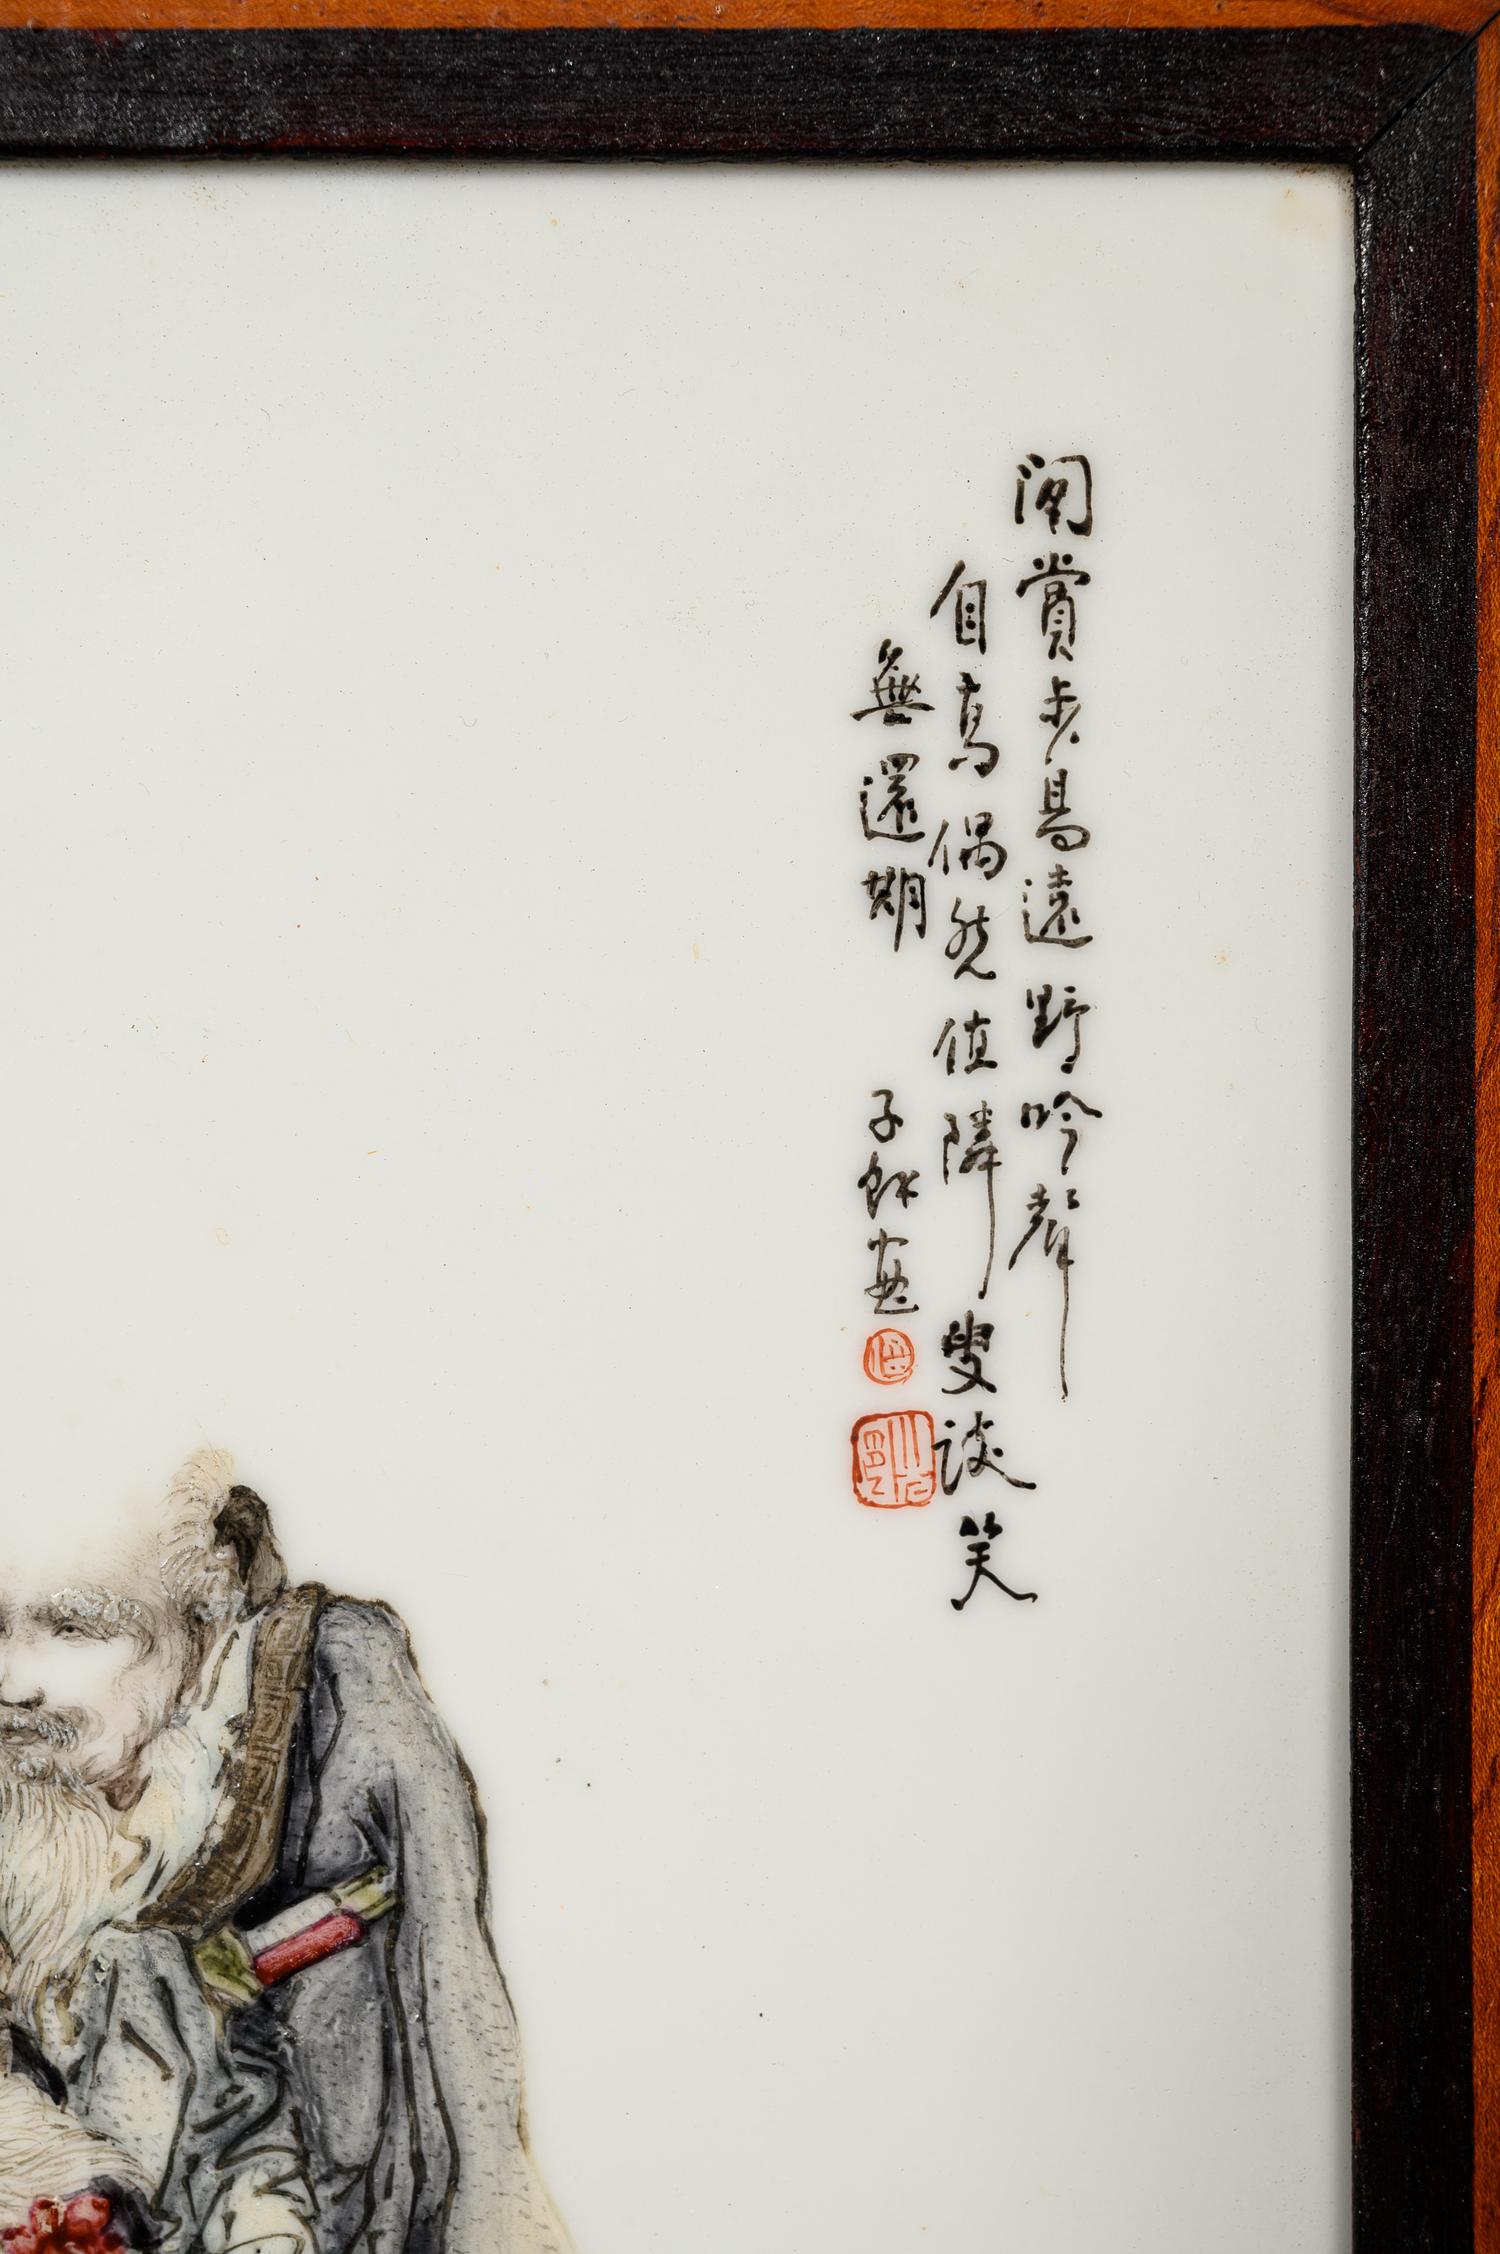 閑賞步易遠野吟聲
自高偶然值隣叟談笑
無還期
子龢画